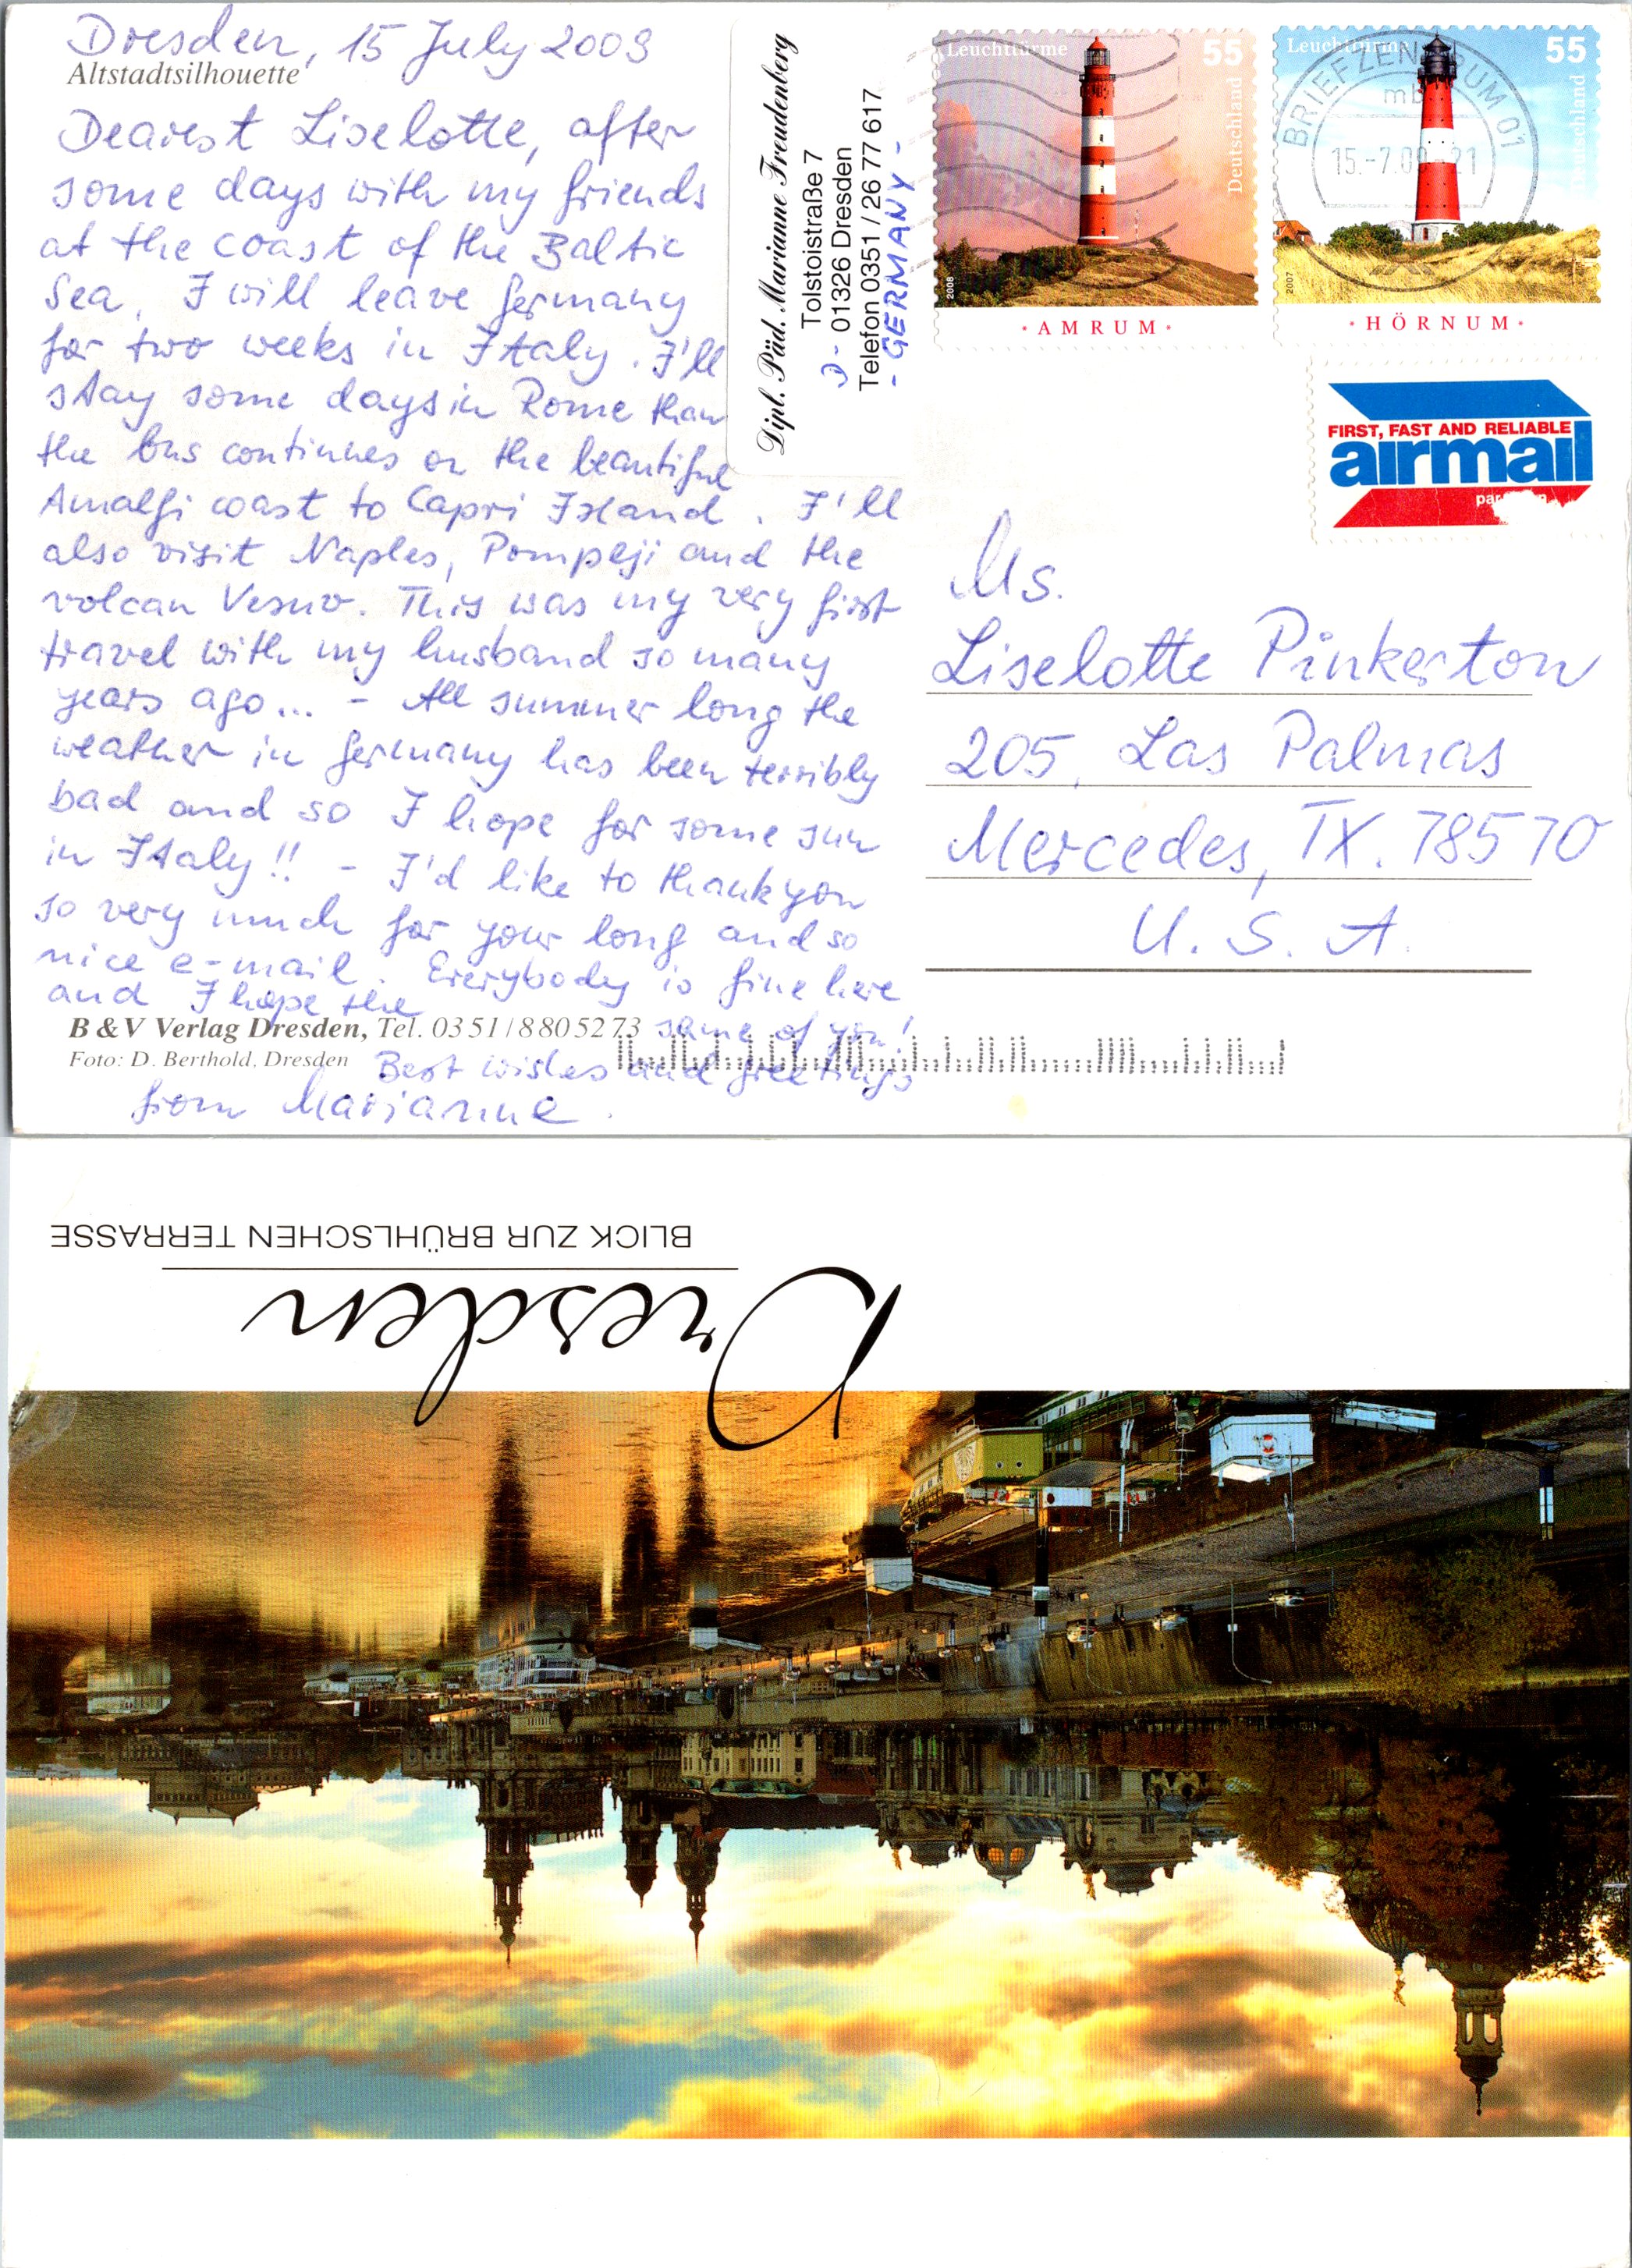 Dresden, 15 July 2009
Altstadtsilhouette
Dearest Liselotte, after
some days with my friends
at the coast of the Baltic
Sea, I will leave Germany
for two weeks in Italy. I'll
stay some days in Rome than
the bus continues on the beautiful
Amalfi coast to Capri Island. I'll
also visit Naples, Pompeji and the
volcan Vesuv. This was my very first
travel with my husband so many
years ago... - All summer long the
weather in Germany has been terribly
bad and so I hope for some sun
in Italy!! - I'd like to thank you
so very much for your long and so
nice e-mail. Everybody is fine here
and I hope the
same of you!
B & V Verlag Dresden, Tel. 03 51 / 8 80 52 73
Foto: D. Berthold, Dresden
Best wishes and greetings
from Marianne.
Dipl. Päd. Marianne Freudenberg
Tolstoistraße 7
D - 01326 Dresden
Telefon 0351 / 26 77 617
- GERMANY -
Leuchttürme 55
Deutschland
2008
· AMRUM ·
Leuchttürme 55
Deutschland
2007
· HÖRNUM ·
BRIEFZENTRUM 01
mb
15.-7.09-21
FIRST, FAST AND RELIABLE
airmail
par
Ms.
Liselotte Pinkerton
205, Las Palmas
Mercedes, TX. 78570
U. S. A.
BLICK ZUR BRÜHLSCHEN TERRASSE
Dresden